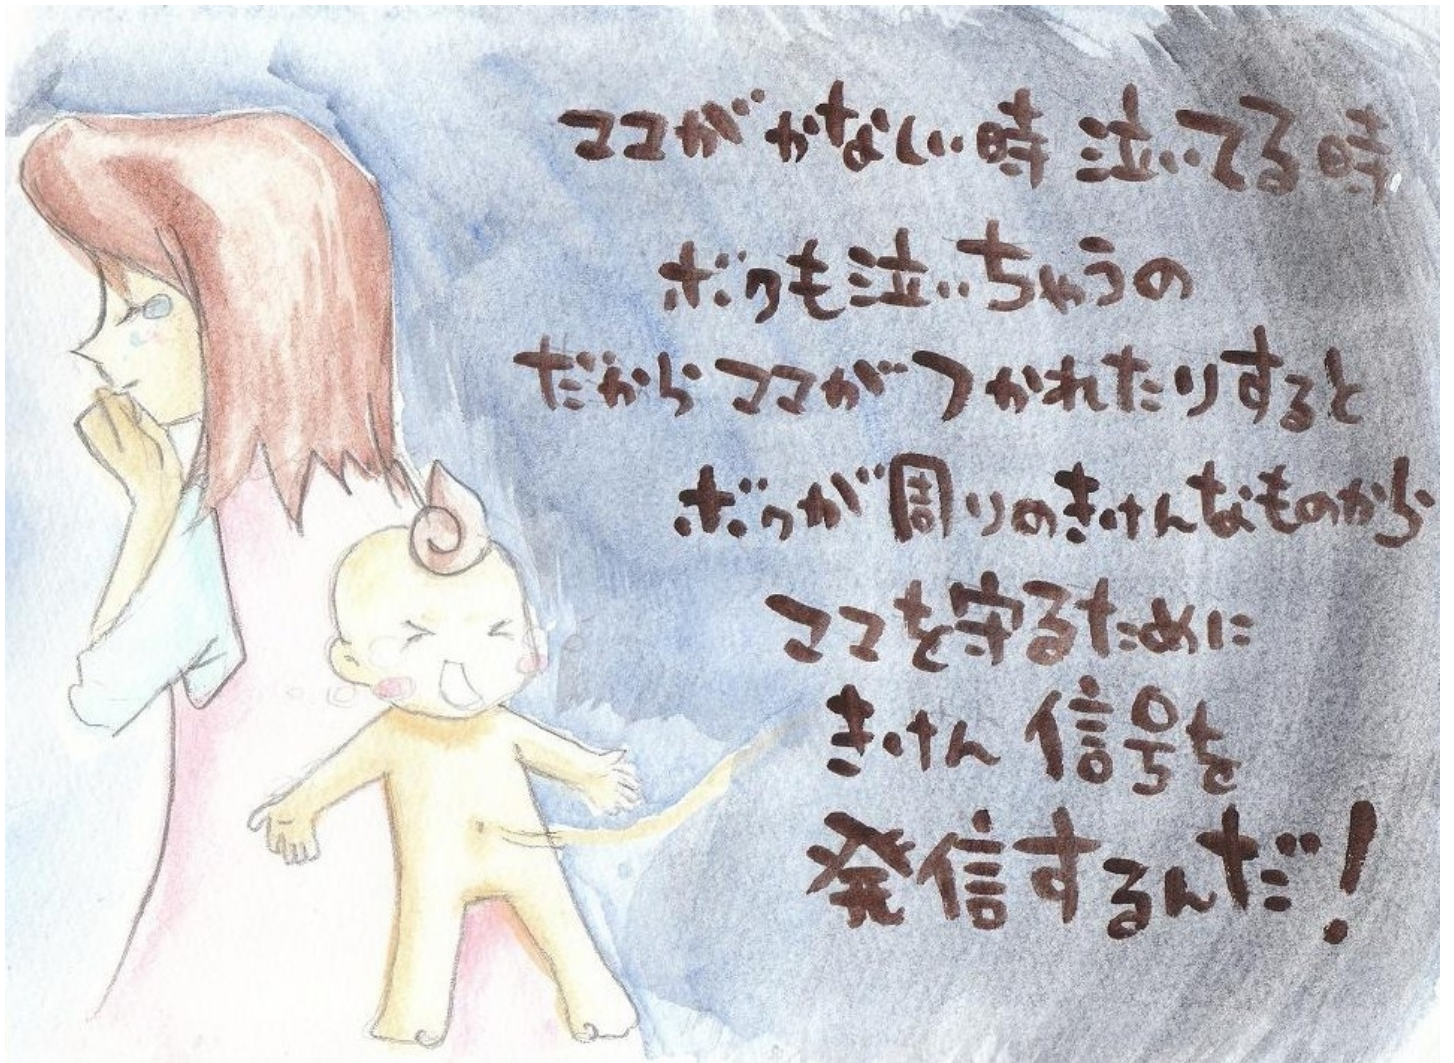 ママがかなしい時 泣いてる時
ボクも泣いちゃうの
だからママがつかれたりすると
ボクが周りのきけんなものから
ママを守るために
きけん信号を
発信するんだ！